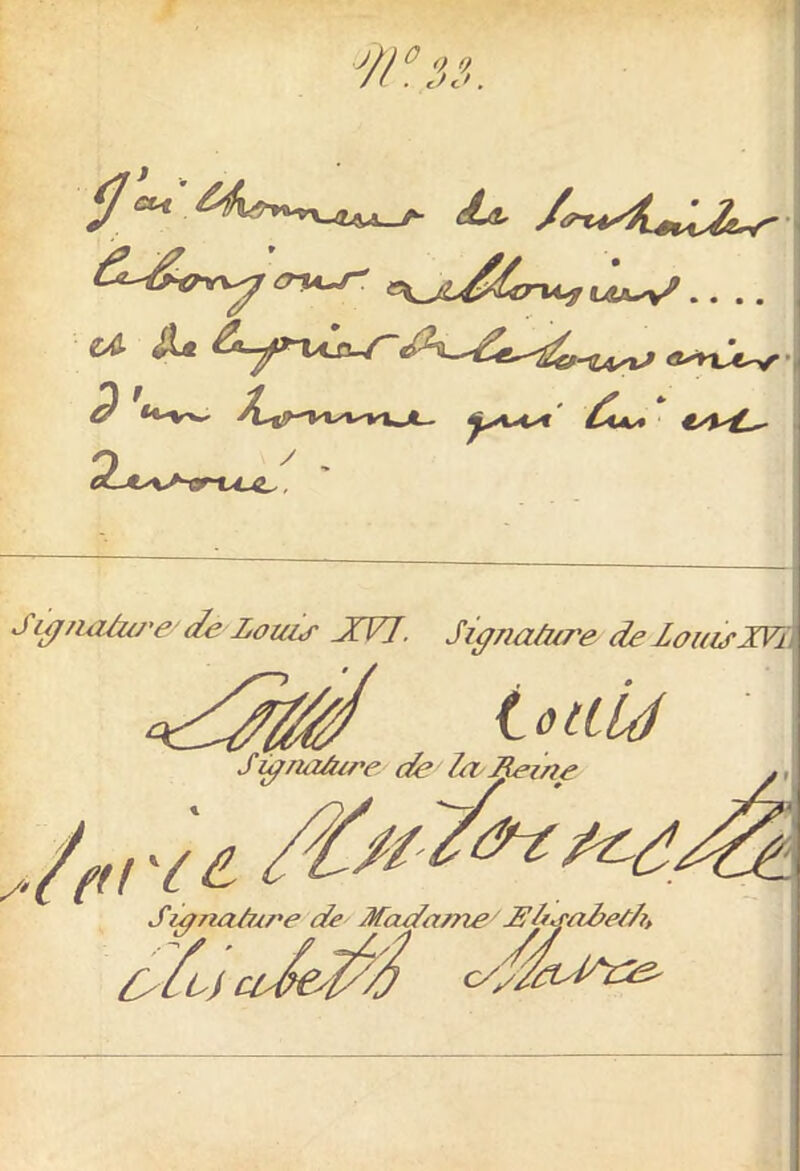 N.º 33.
J'ai lhonneur de souhaiter
lebonjour a Monsieur....
et de leprier de se souvenir
d'un homme qui lui est
devoué.
Signature de Louis XVI. Signature de Louis XVI
Louis Louis
Signature de la Reine
Marie Antoinette
Signature de Madame Elisabeth
Elisabeth Marie